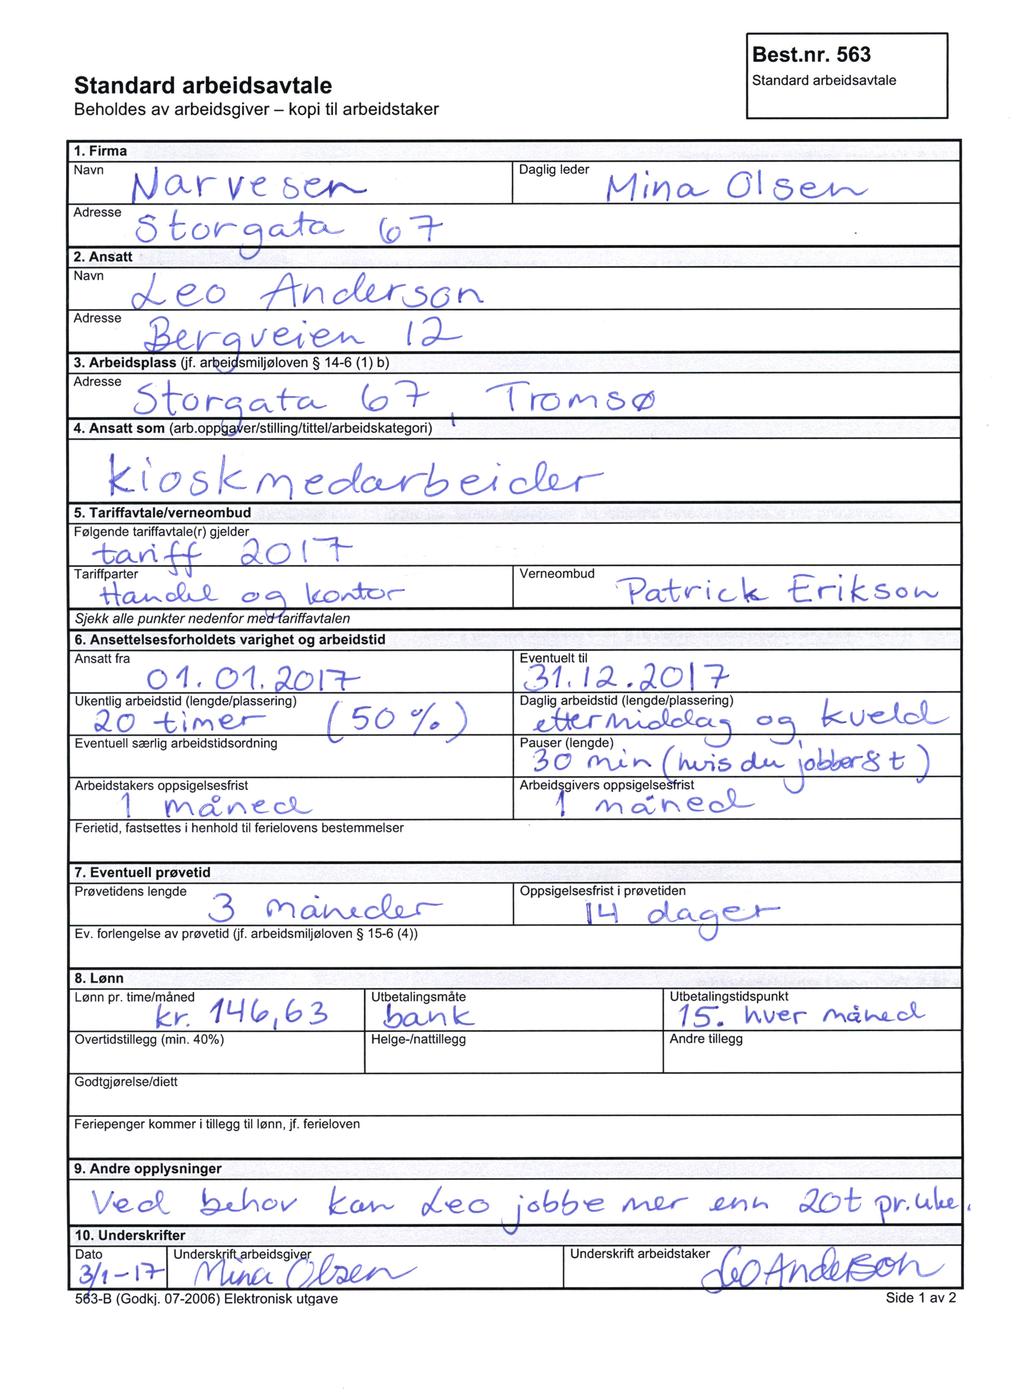 Best.nr. 563
Standard arbeidsavtale
Standard arbeidsavtale
Beholdes av arbeidsgiver – kopi til arbeidstaker
1. Firma
Navn Narvesen Daglig leder Mina Olsen
Adresse Storgata 67
2. Ansatt
Navn Leo Anderson
Adresse Bergveien 12
3. Arbeidsplass (jf. arbeidsmiljøloven § 14-6 (1) b)
Adresse Storgata 67, Tromsø
4. Ansatt som (arb.oppgaver/stilling/tittel/arbeidskategori)
kioskmedarbeider
5. Tariffavtale/verneombud
Følgende tariffavtale(r) gjelder
tariff 2017
Tariffparter Verneombud
Handel og kontor Patrick Erikson
Sjekk alle punkter nedenfor med tariffavtalen
6. Ansettelsesforholdets varighet og arbeidstid
Ansatt fra Eventuelt til
01.01.2017 31.12.2017
Ukentlig arbeidstid (lengde/plassering) Daglig arbeidstid (lengde/plassering)
20 timer (50 %) ettermiddag og kveld
Eventuell særlig arbeidstidsordning Pauser (lengde)
30 min (hvis du jobber 8 t)
Arbeidstakers oppsigelsesfrist Arbeidsgivers oppsigelsesfrist
1 måned 1 måned
Ferietid, fastsettes i henhold til ferielovens bestemmelser
7. Eventuell prøvetid
Prøvetidens lengde Oppsigelsesfrist i prøvetiden
3 måneder 14 dager
Ev. forlengelse av prøvetid (jf. arbeidsmiljøloven § 15-6 (4))
8. Lønn
Lønn pr. time/måned Utbetalingsmåte Utbetalingstidspunkt
kr. 146,63 bank 15. hver måned
Overtidstillegg (min. 40%) Helge-/nattillegg Andre tillegg
Godtgjørelse/diett
Feriepenger kommer i tillegg til lønn, jf. ferieloven
9. Andre opplysninger
Ved behov kan Leo jobbe mer enn 20t pr. uke.
10. Underskrifter
Dato Underskrift arbeidsgiver Underskrift arbeidstaker
3/1-17 Mina Olsen Leo Anderson
563-B (Godkj. 07-2006) Elektronisk utgave Side 1 av 2